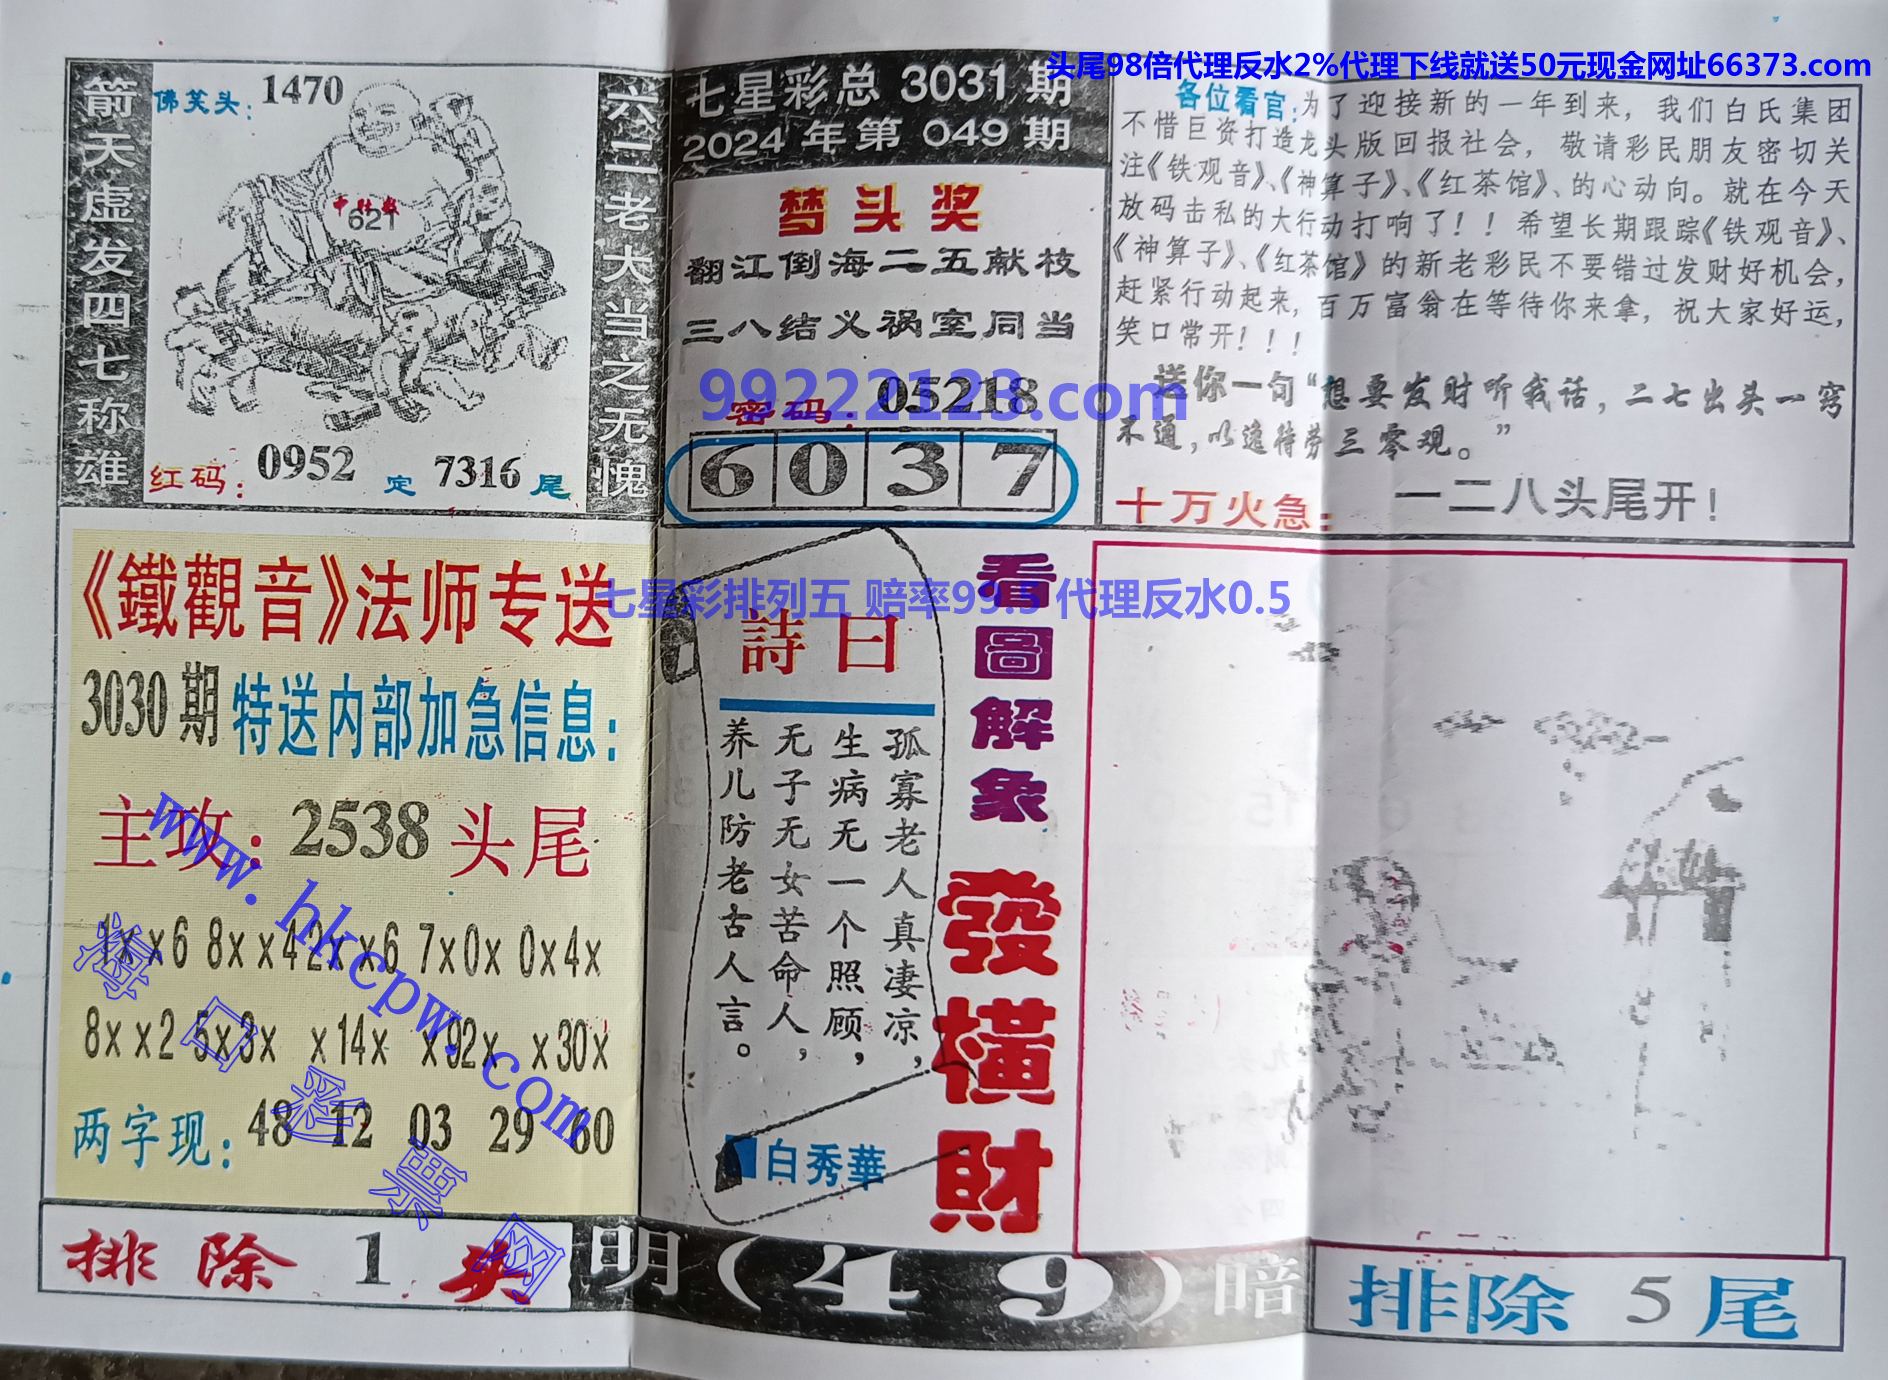 头尾98倍代理反水2%代理下线就送50元现金网址66373.com
箭天虚发四七称雄
佛笑头：1470
中肚数
621
红码：0952 定 7316 尾
六二老大当之无愧
七星彩总 3031 期
2024 年第 049 期
梦头奖
翻江倒海二五献枝
三八结义祸室同当
密码：05218
99222123.com
6037
各位看官：为了迎接新的一年到来，我们白氏集团
不惜巨资打造龙头版回报社会，敬请彩民朋友密切关
注《铁观音》、《神算子》、《红茶馆》、的心动向。就在今天
放码击私的大行动打响了！！希望长期跟踪《铁观音》、
《神算子》、《红茶馆》的新老彩民不要错过发财好机会，
赶紧行动起来，百万富翁在等待你来拿，祝大家好运，
笑口常开！！！
送你一句“想要发财听我话，二七出头一窍
不通，以逸待劳三零观。”
十万火急：一二八头尾开！
《鐵觀音》法师专送
3030期特送内部加急信息：
主攻：2538头尾
1xx6 8xx4 2xx6 7x0x 0x4x
8xx2 5x3x x14x x92x x30x
两字现：48 12 03 29 60
www.hkcpw.com
海口彩票网
七星彩排列五 赔率99.5 代理反水0.5
詩曰
孤寡老人真凄凉，
生病无一个照顾，
无子无女苦命人，
养儿防老古人言。
白秀華
看圖解象
發橫財
排除 1 头
明(49)暗
排除 5 尾